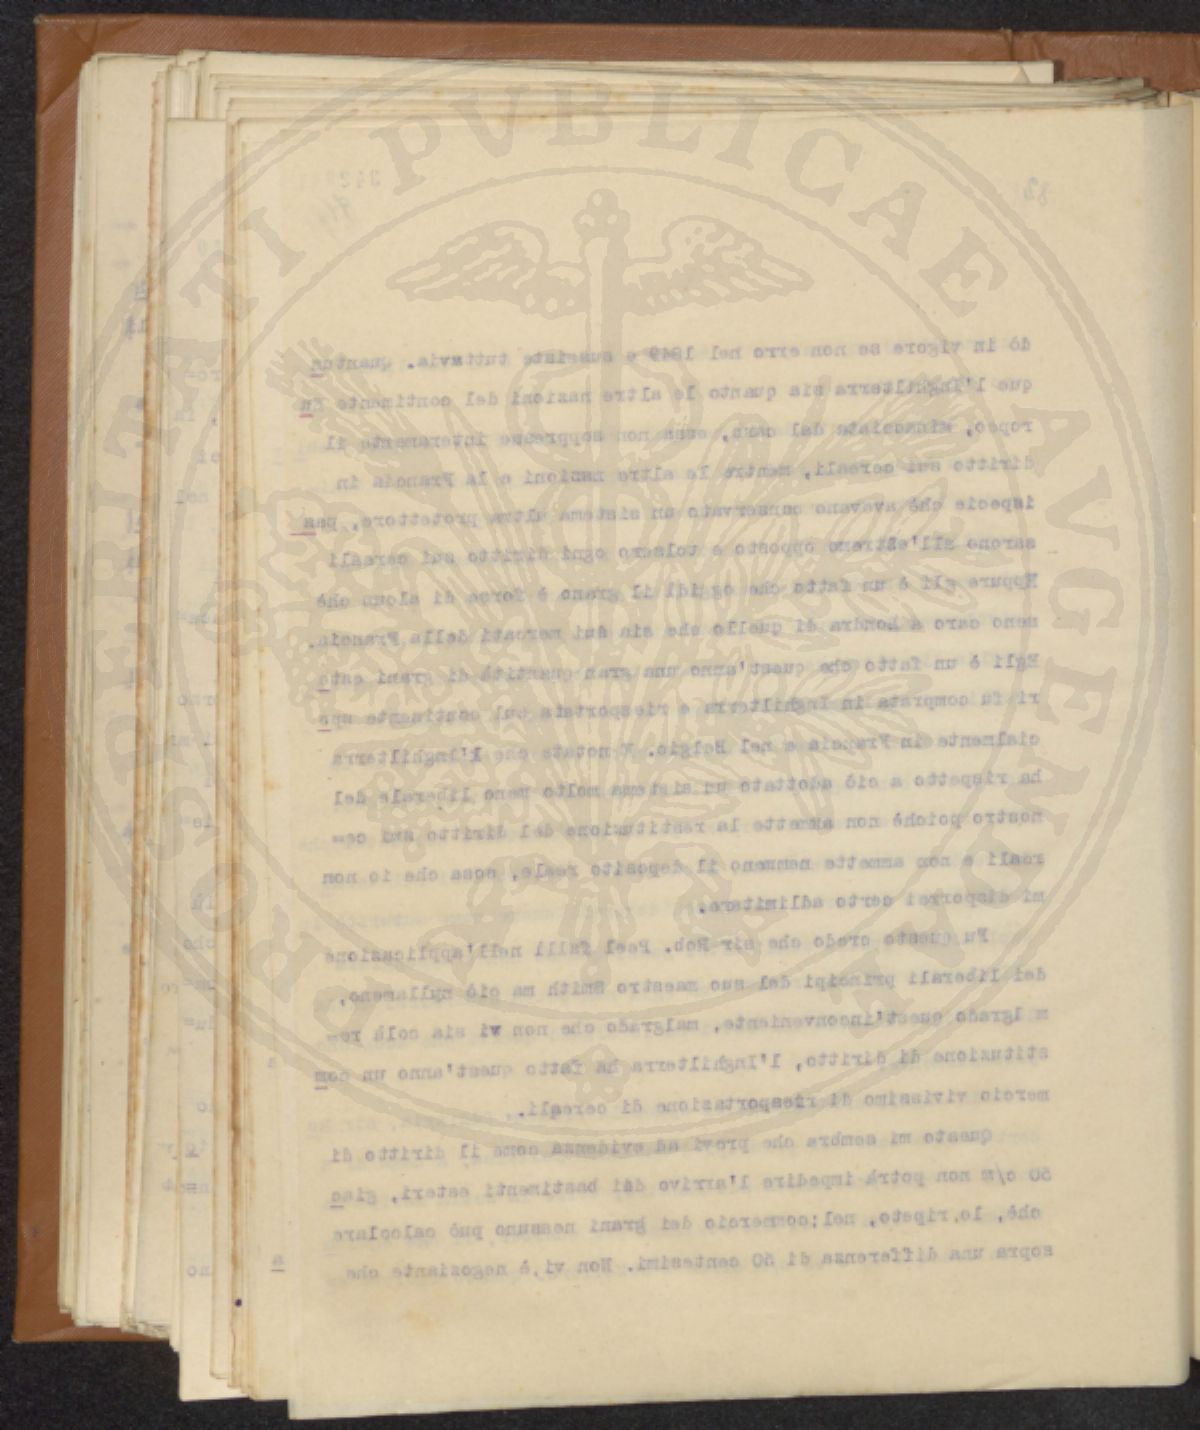 dò in vigore se non erro nel 1849 e sussiste tuttavia. Quantun
que l'Inghilterra sia quanto le altre nazioni del continente Eu
ropeo, minacciata dal caos, essa non soppresse interamente il
diritto sui cereali, mentre le altre nazioni e la Francia in
ispecie chè avevano conservato un sistema ultra protettore, pas
sarono all'estremo opposto e tolsero ogni diritto sui cereali
Eppure gli è un fatto che oggidì il grano è forse di alcun chè
meno caro a Londra di quello che sia sui mercati della Francia.
Egli è un fatto che quest'anno una gran quantità di grani este
ri fu comprata in Inghilterra e riesportata sul continente spe
cialmente in Francia e nel Belgio. E notate che l'Inghilterra
ha rispetto a ciò adottato un sistema molto meno liberale del
nostro poichè non ammette la restituzione del diritto sui ce-
reali e non ammette nemmeno il deposito reale, cosa che io non
mi disporrei certo ad imitare.
Fu questo credo che sir Rob. Peel fallì nell'applicazione
dei liberali principi del suo maestro Smith ma ciò nullameno,
m lgrado quest'inconveniente, malgrado che non vi sia colà re-
stituzione di diritto, l'Inghilterra ha fatto quest'anno un com
mercio vivissimo di riesportazione di cereali.
Questo mi sembra che provi ad evidenza come il diritto di
50 c/m non potrà impedire l'arrivo dai bastimenti esteri, giac
chè, lo ripeto, nel commercio dei grani nessuno può calcolare
sopra una differenza di 50 centesimi. Non vi è negoziante che